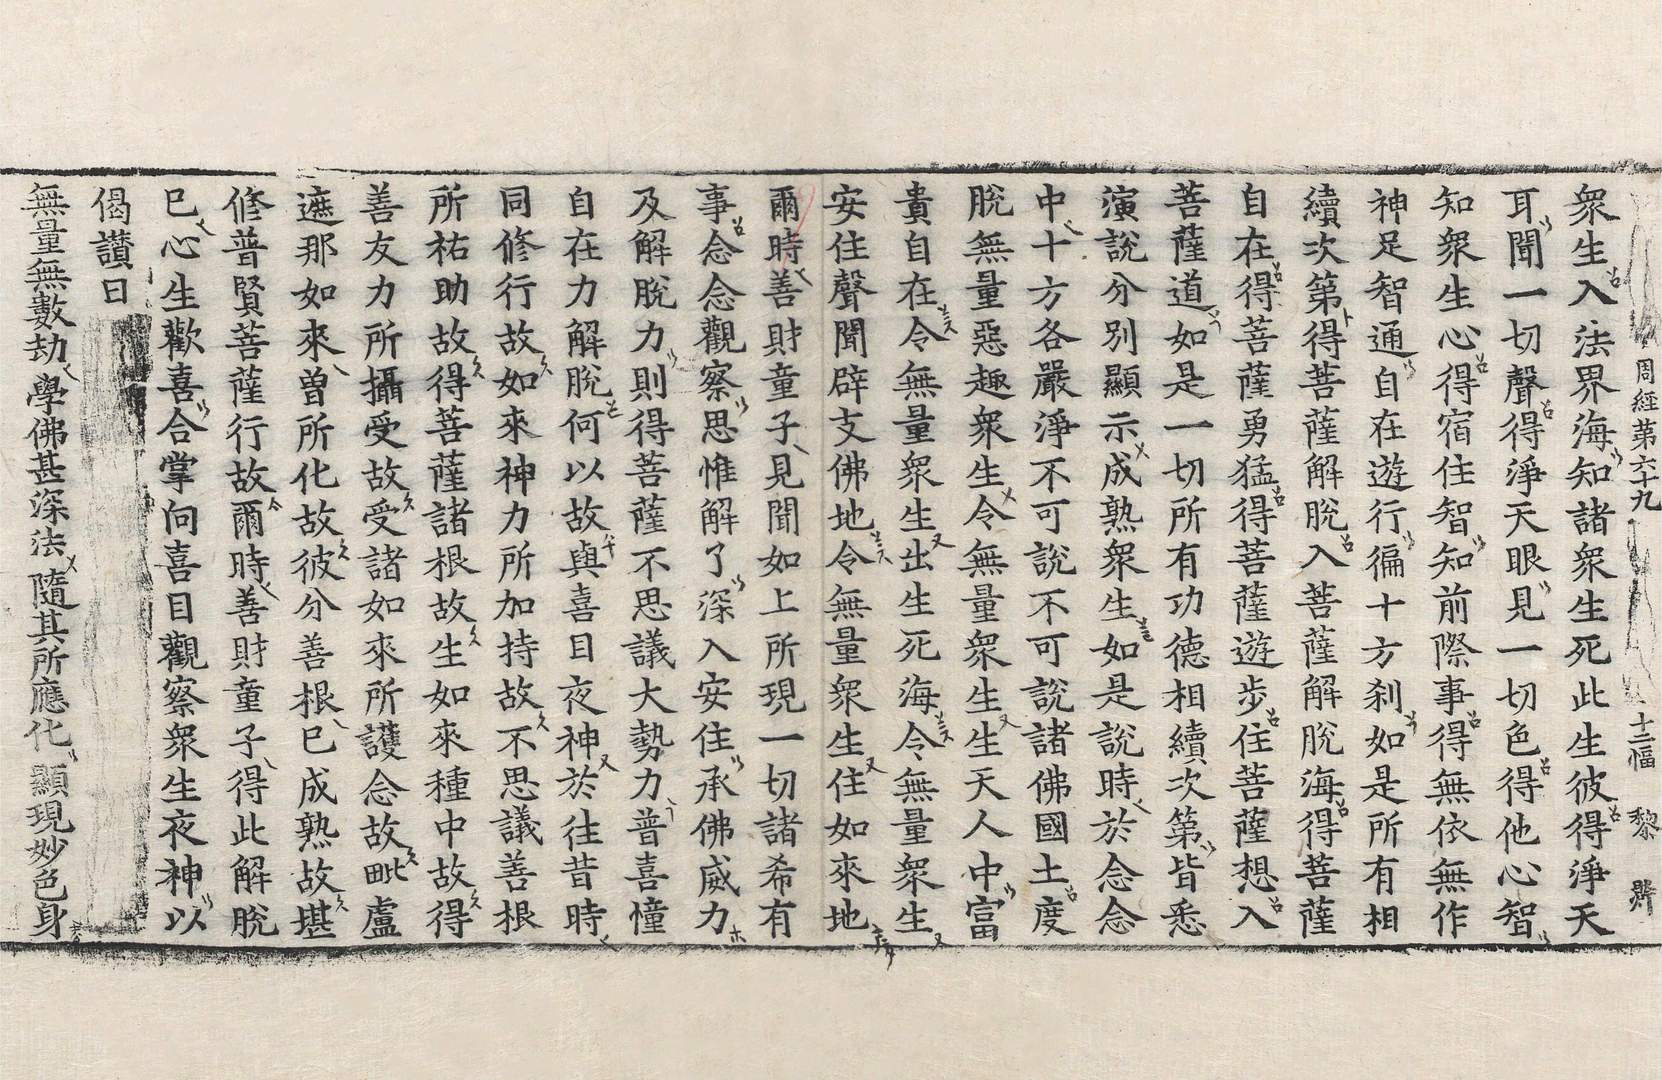 周經第六十九 十二幅 黎
衆生入法界海知諸衆生死此生彼得淨天
耳聞一切聲得淨天眼見一切色得他心智
知衆生心得宿住智知前際事得無依無作
神足智通自在遊行徧十方刹如是所有相
續次第得菩薩解脫入菩薩解脫海得菩薩
自在得菩薩勇猛得菩薩遊步住菩薩想入
菩薩道如是一切所有功德相續次第皆悉
演說分別顯示成熟衆生如是說時於念念
中十方各嚴淨不可說不可說諸佛國土度
脫無量惡趣衆生令無量衆生生天人中富
貴自在令無量衆生出生死海令無量衆生
安住聲聞辟支佛地令無量衆生住如來地
爾時善財童子見聞如上所現一切諸希有
事念念觀察思惟解了深入安住承佛威力
及解脫力則得菩薩不思議大勢力普喜幢
自在力解脫何以故與喜目夜神於往昔時
同修行故如來神力所加持故不思議善根
所祐助故得菩薩諸根故生如來種中故得
善友力所攝受故受諸如來所護念故毗盧
遮那如來曾所化故彼分善根已成熟故堪
修普賢菩薩行故爾時善財童子得此解脫
已心生歡喜合掌向喜目觀察衆生夜神以
偈讚曰
無量無數劫 學佛甚深法 隨其所應化 顯現妙色身